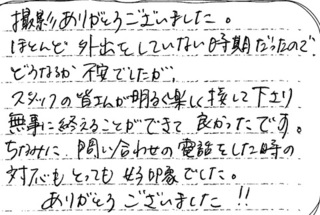 撮影ありがとうございました。
ほとんど外出をしていない時期だったので、
どうなるか不安でしたが、
スタッフの皆さんが明るく楽しく接して下さり
無事に終えることができて良かったです。
ちなみに、問い合わせの電話をした時の
対応もとっても好印象でした。
ありがとうございました!!